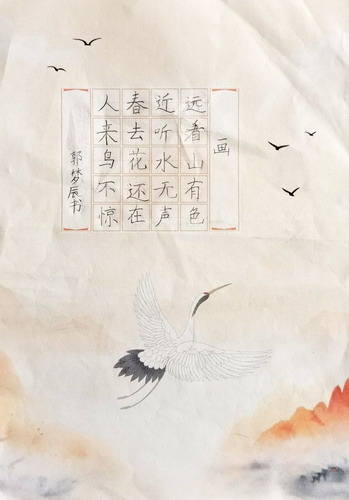 画
远看山有色
近听水无声
春去花还在
人来鸟不惊
郭梦辰书